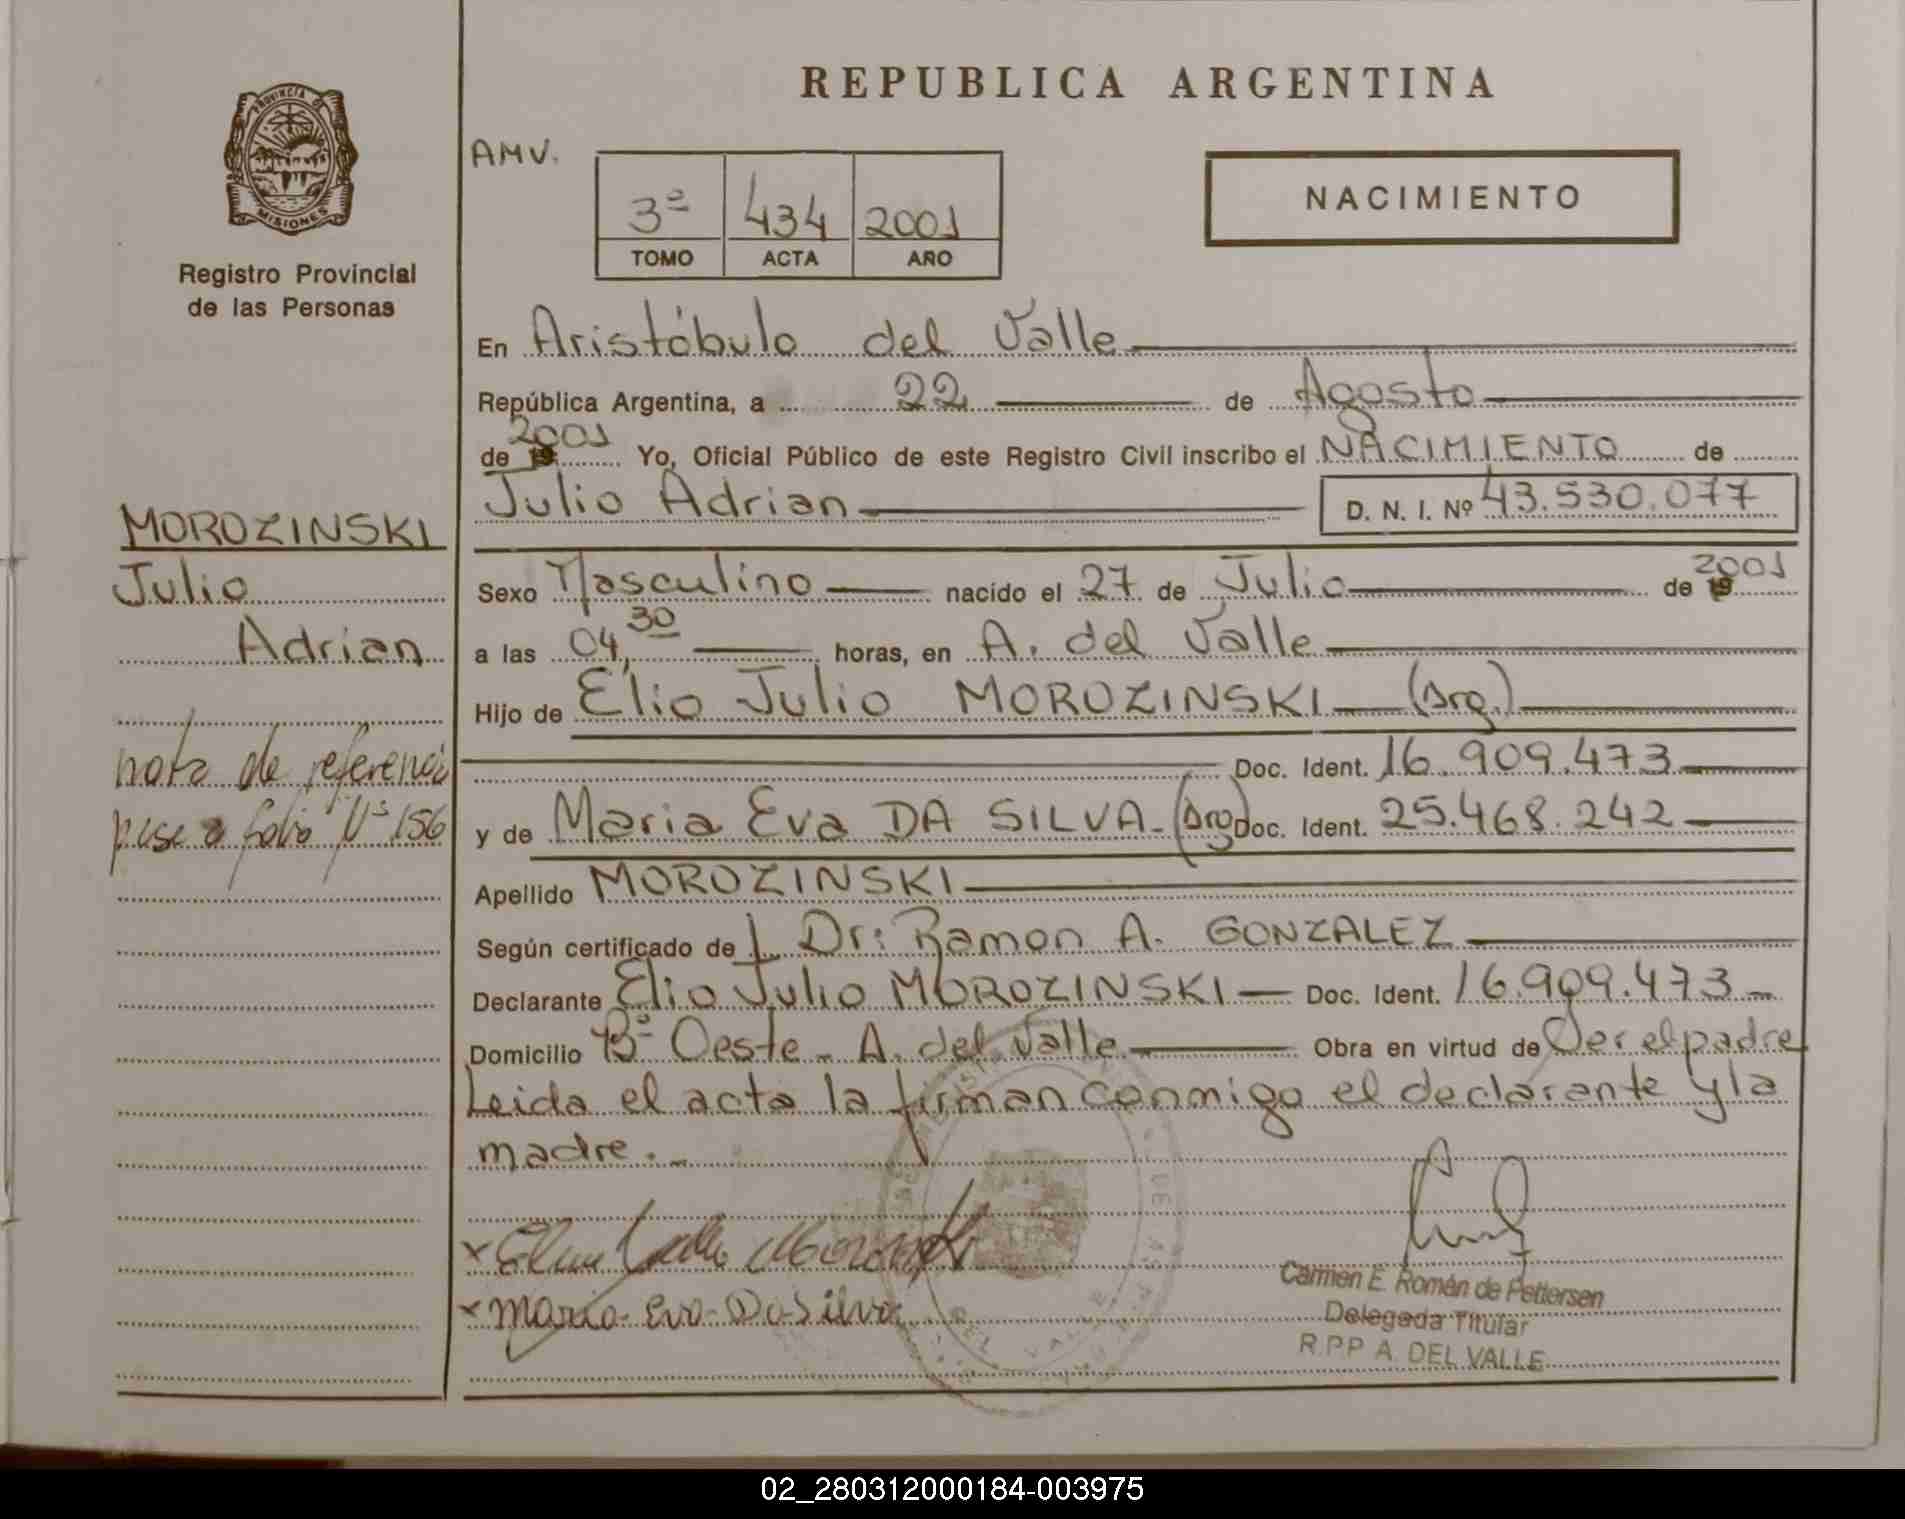 REPUBLICA ARGENTINA
PROVINCIA DE
MISIONES
Registro Provincial
de las Personas
AMV.
3º 434 2001
TOMO ACTA AÑO
NACIMIENTO
En Aristóbulo del Valle
República Argentina, a 22 de Agosto
2001
de 19 Yo, Oficial Público de este Registro Civil inscribo el NACIMIENTO de
Julio Adrian D. N. I. Nº 43.530.077
MOROZINSKI
Julio
Adrian
nota de referencia
pase a folio Nº 156
Sexo Masculino nacido el 27 de Julio de 19 2001
a las 04,30 horas, en A. del Valle
Hijo de Elio Julio MOROZINSKI (Arg.)
Doc. Ident. 16.909.473
y de Maria Eva DA SILVA - (Arg) Doc. Ident. 25.468.242
Apellido MOROZINSKI
Según certificado de Dr: Ramon A. GONZALEZ
Declarante Elio Julio MOROZINSKI Doc. Ident. 16.909.473
Domicilio Bº Oeste - A. del Valle Obra en virtud de Ser el padre
Leida el acta la firman conmigo el declarante y la
madre.-
x
x Maria Eva Da Silva
Carmen E. Román de Pettersen
Delegada Titular
R.P.P. A. DEL VALLE
02_280312000184-003975